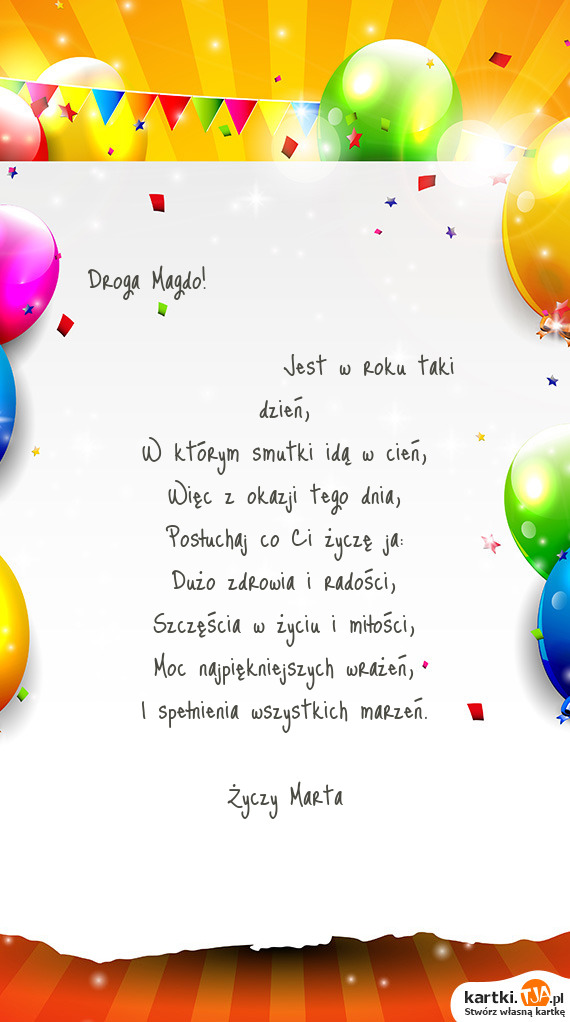 Droga Magdo!
Jest w roku taki
dzień,
W którym smutki idą w cień,
Więc z okazji tego dnia,
Posłuchaj co Ci życzę ja:
Dużo zdrowia i radości,
Szczęścia w życiu i miłości,
Moc najpiękniejszych wrażeń,
I spełnienia wszystkich marzeń.
Życzy Marta
kartki.TJA.pl
Stwórz własną kartkę